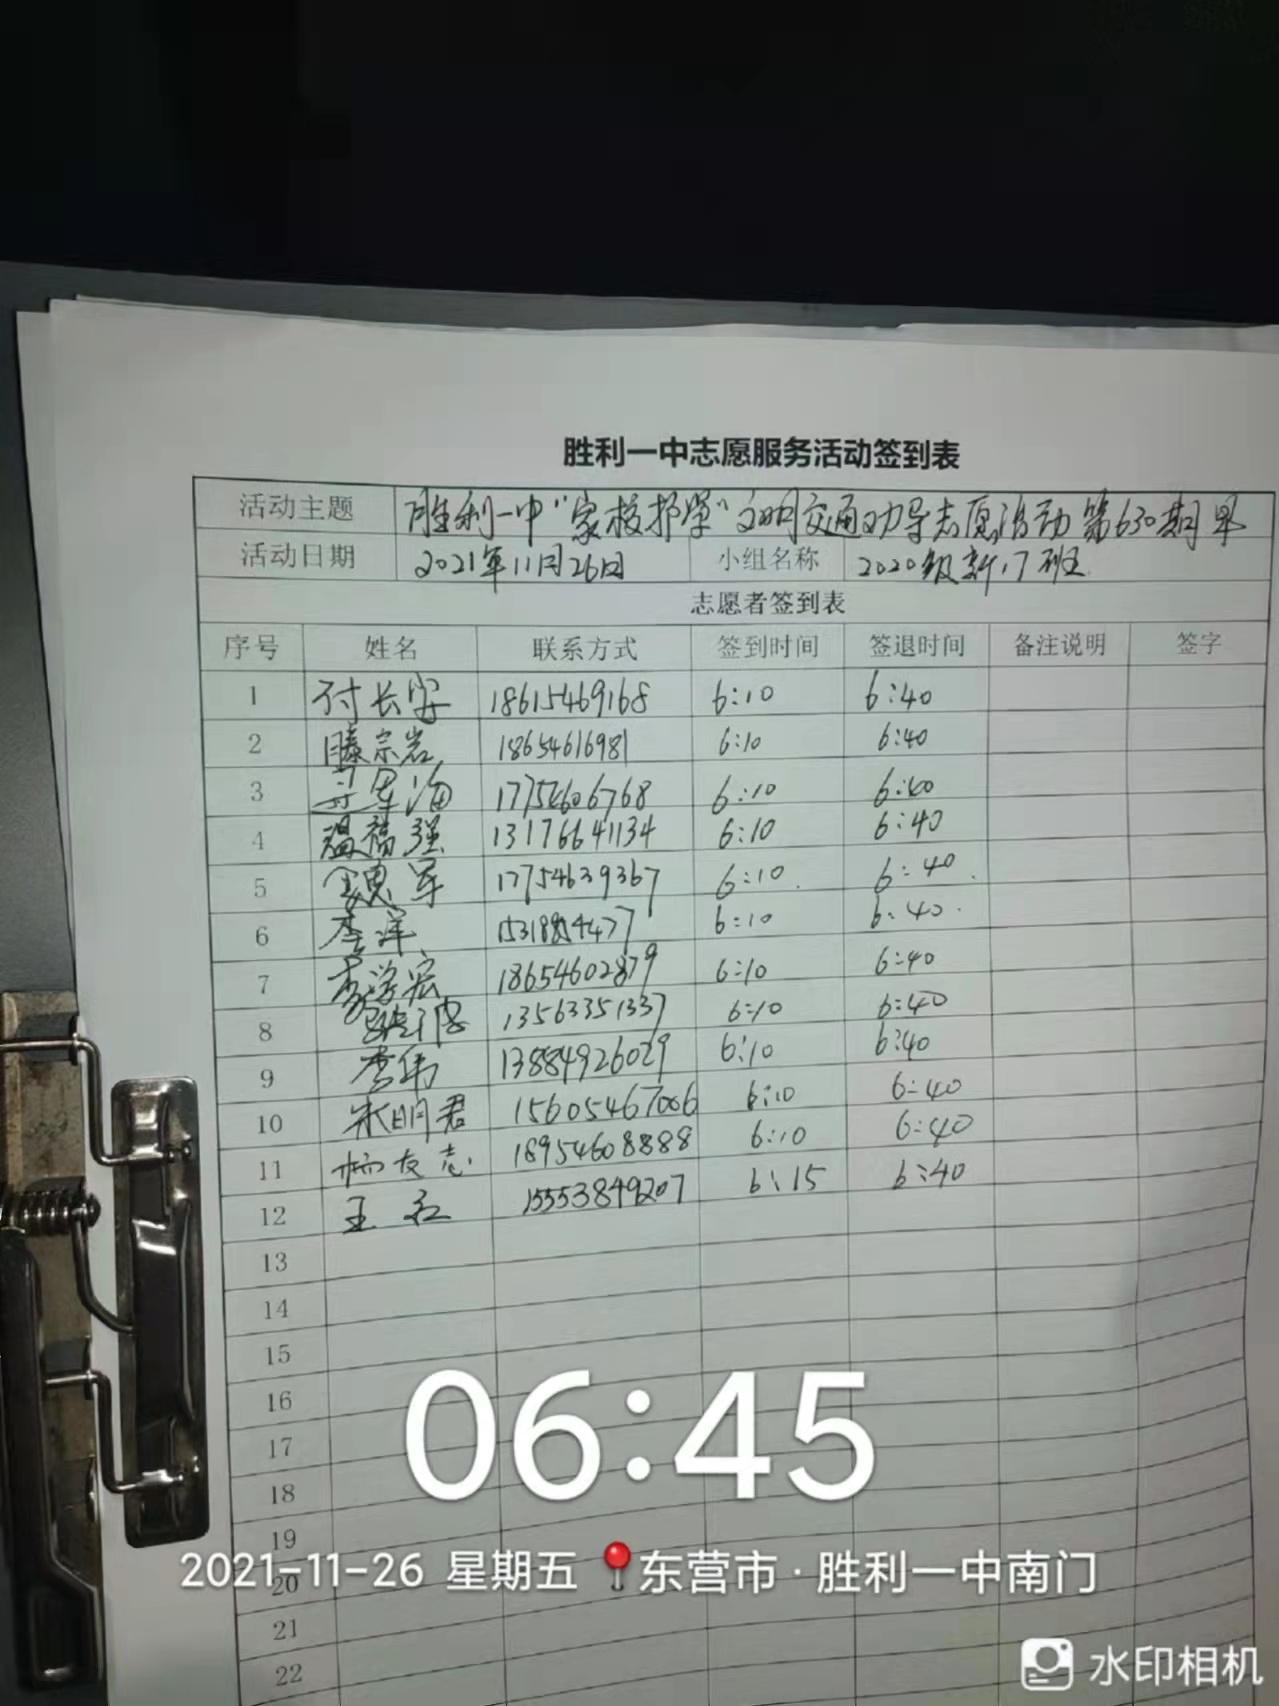 胜利一中志愿服务活动签到表
活动主题 胜利一中“家校护学”文明交通劝导志愿活动第630期早
活动日期 2021年11月26日 小组名称 2020级新.7班
志愿者签到表
序号 姓名 联系方式 签到时间 签退时间 备注说明 签字
1 付长安 18615469168 6:10 6:40
2 滕宗岩 18654616981 6:10 6:40
3 17754606768 6:10 6:40
4 温福强 13176641134 6:10 6:40
5 军 17754639367 6:10 6:40
6 李洋 6:10 6:40
7 李学宏 18654602879 6:10 6:40
8 13563351337 6:10 6:40
9 李伟 13884926029 6:10 6:40
10 宋明君 15605467006 6:10 6:40
11 杨友志 18954608888 6:10 6:40
12 王红 15553849207 6:15 6:40
13
14
15
16
17
18
19
20
21
22
06:45
2021-11-26 星期五 东营市·胜利一中南门
水印相机